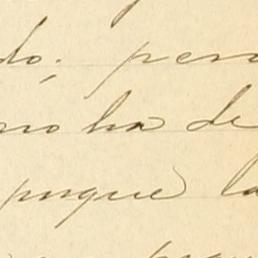 do; pero
no ha de
porque la